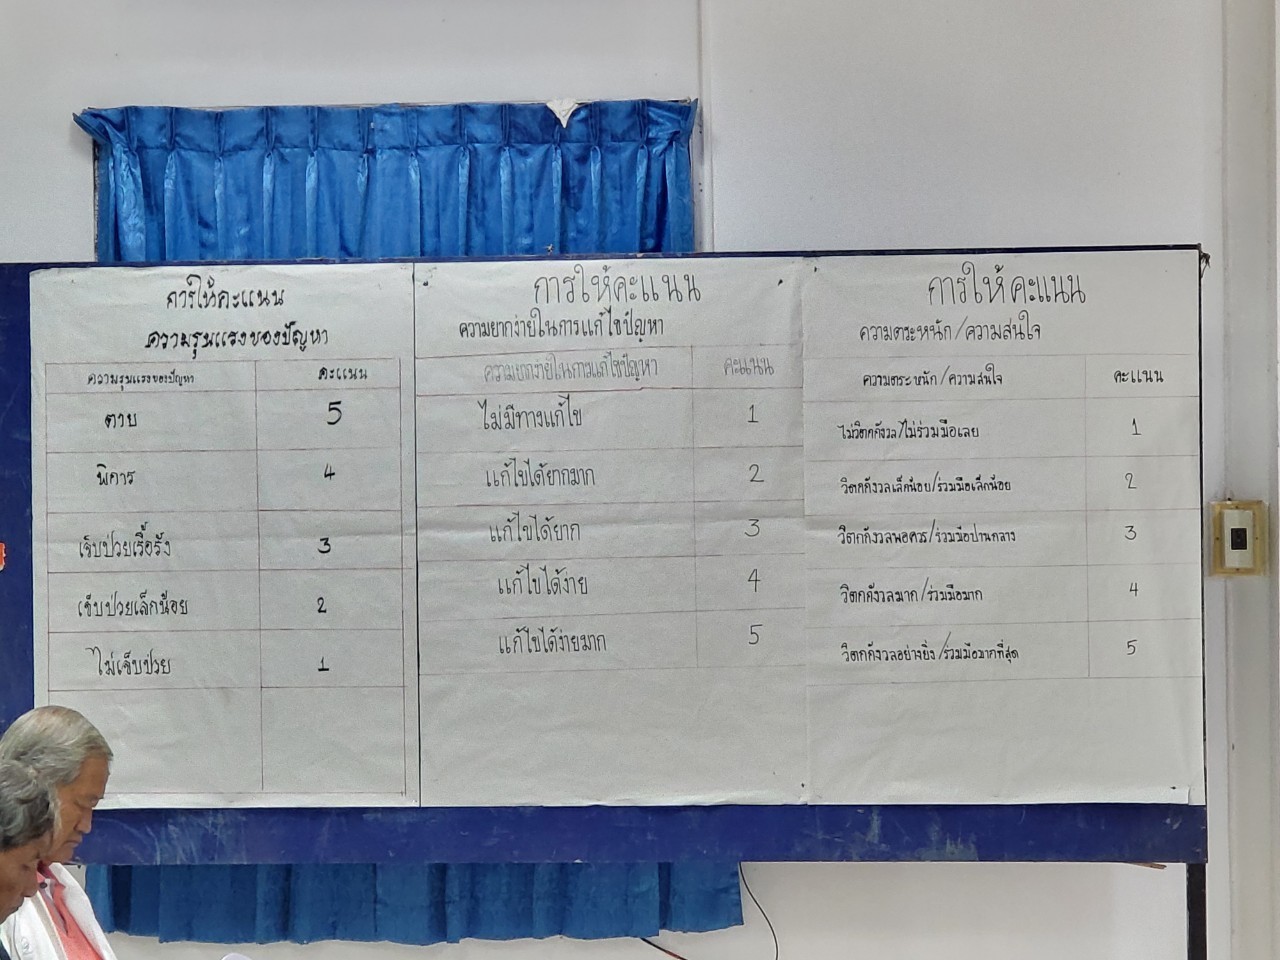 การให้คะแนน
ความรุนแรงของปัญหา
ความรุนแรงของปัญหา คะแนน
ตาย 5
พิการ 4
เจ็บป่วยเรื้อรัง 3
เจ็บป่วยเล็กน้อย 2
ไม่เจ็บป่วย 1
การให้คะแนน
ความยากง่ายในการแก้ไขปัญหา
ความยากง่ายในการแก้ไขปัญหา คะแนน
ไม่มีทางแก้ไข 1
แก้ไขได้ยากมาก 2
แก้ไขได้ยาก 3
แก้ไขได้ง่าย 4
แก้ไขได้ง่ายมาก 5
การให้คะแนน
ความตระหนัก/ความสนใจ
ความตระหนัก/ความสนใจ คะแนน
ไม่วิตกกังวล/ไม่ร่วมมือเลย 1
วิตกกังวลเล็กน้อย/ร่วมมือเล็กน้อย 2
วิตกกังวลพอควร/ร่วมมือปานกลาง 3
วิตกกังวลมาก/ร่วมมือมาก 4
วิตกกังวลอย่างยิ่ง/ร่วมมือมากที่สุด 5